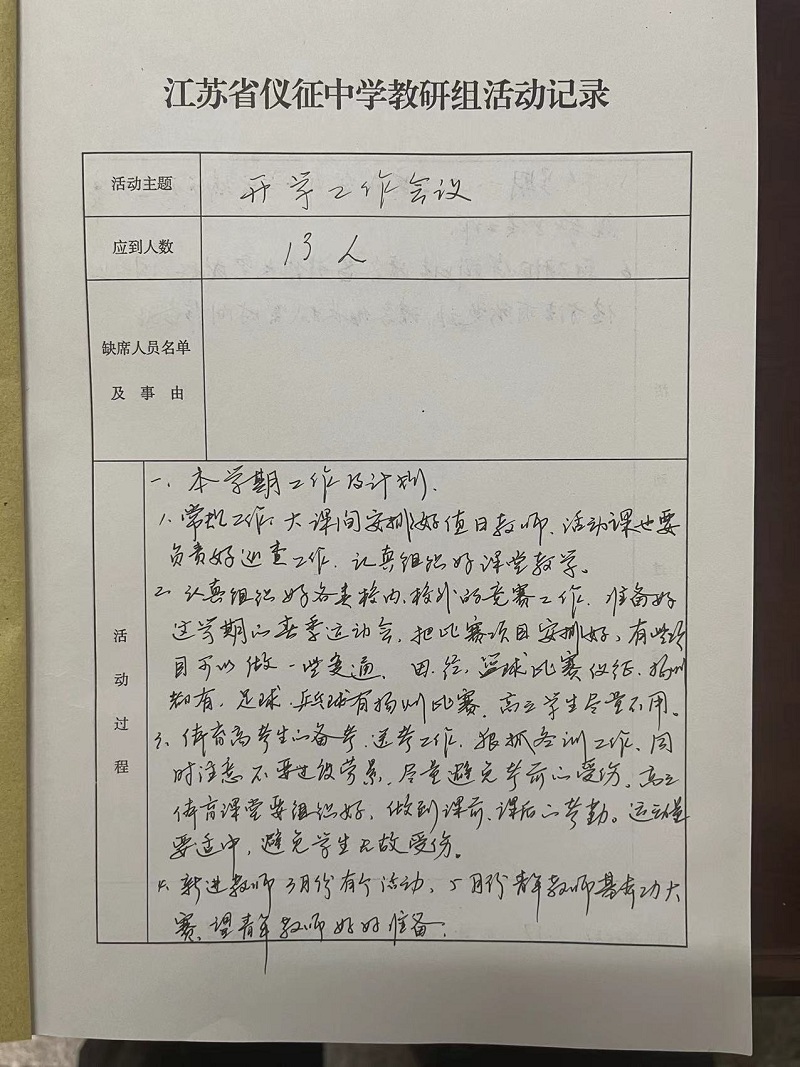 江苏省仪征中学教研组活动记录
活动主题
开学工作会议
应到人数
13人
缺席人员名单
及事由
活动过程
一、本学期工作及计划.
1、常规工作:大课间安排好值日教师、活动课也要
负责好巡查工作.认真组织好课堂教学。
二、认真组织好各类校内、校外的竞赛工作.准备好
这学期的春季运动会,把比赛项目安排好,有些项
目可以做一些变通、田、径、篮球比赛仪征、扬州
都有,足球、乒乓球有扬州比赛.高三学生尽量不用。
三、体育高考生的备考、送考工作.狠抓冬训工作、同
时注意不要过役劳累.尽量避免考前的受伤.高三
体育课堂要组织好,做到课前、课后的考勤。运动量
要适中,避免学生无故受伤。
四、新进教师3月份有个活动、5月份青年教师基本功大
赛、望青年教师好好准备.